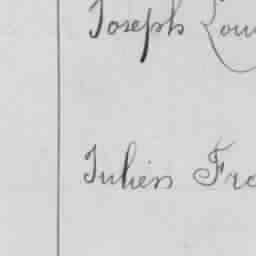 Joseph Lou
Julien Fra